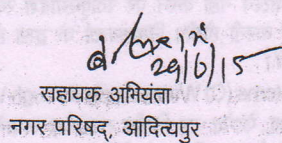 29/6/15
सहायक अभियंता
नगर परिषद्, आदित्यपुर